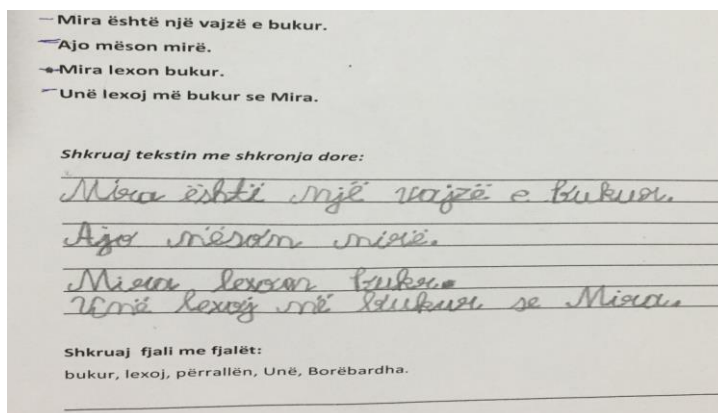 Mira është një vajzë e bukur.
Ajo mëson mirë.
Mira lexon bukur.
Unë lexoj më bukur se Mira.
Shkruaj tekstin me shkronja dore:
Miraështë një vajzë e bukur.
Ajo mësom mirë.
Mira lexoan buku.
Unë lexoj më bukur se Mira.
Shkruaj fjali me fjalët:
bukur, lexoj, përrallën, Unë, Borëbardha.